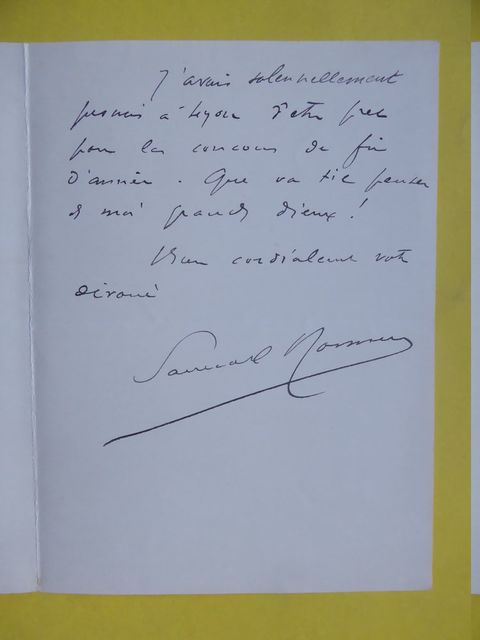 J'avais solennellement
promis à Lyon d'être prêt
pour les concours de fin
d'année. Que va t-il penser
de moi grands dieux!
Bien cordialement votre
dévoué